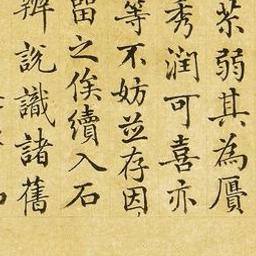 弱其為贗
秀潤可喜亦
等不妨並存因
留之俟續入石
辨說識諸舊